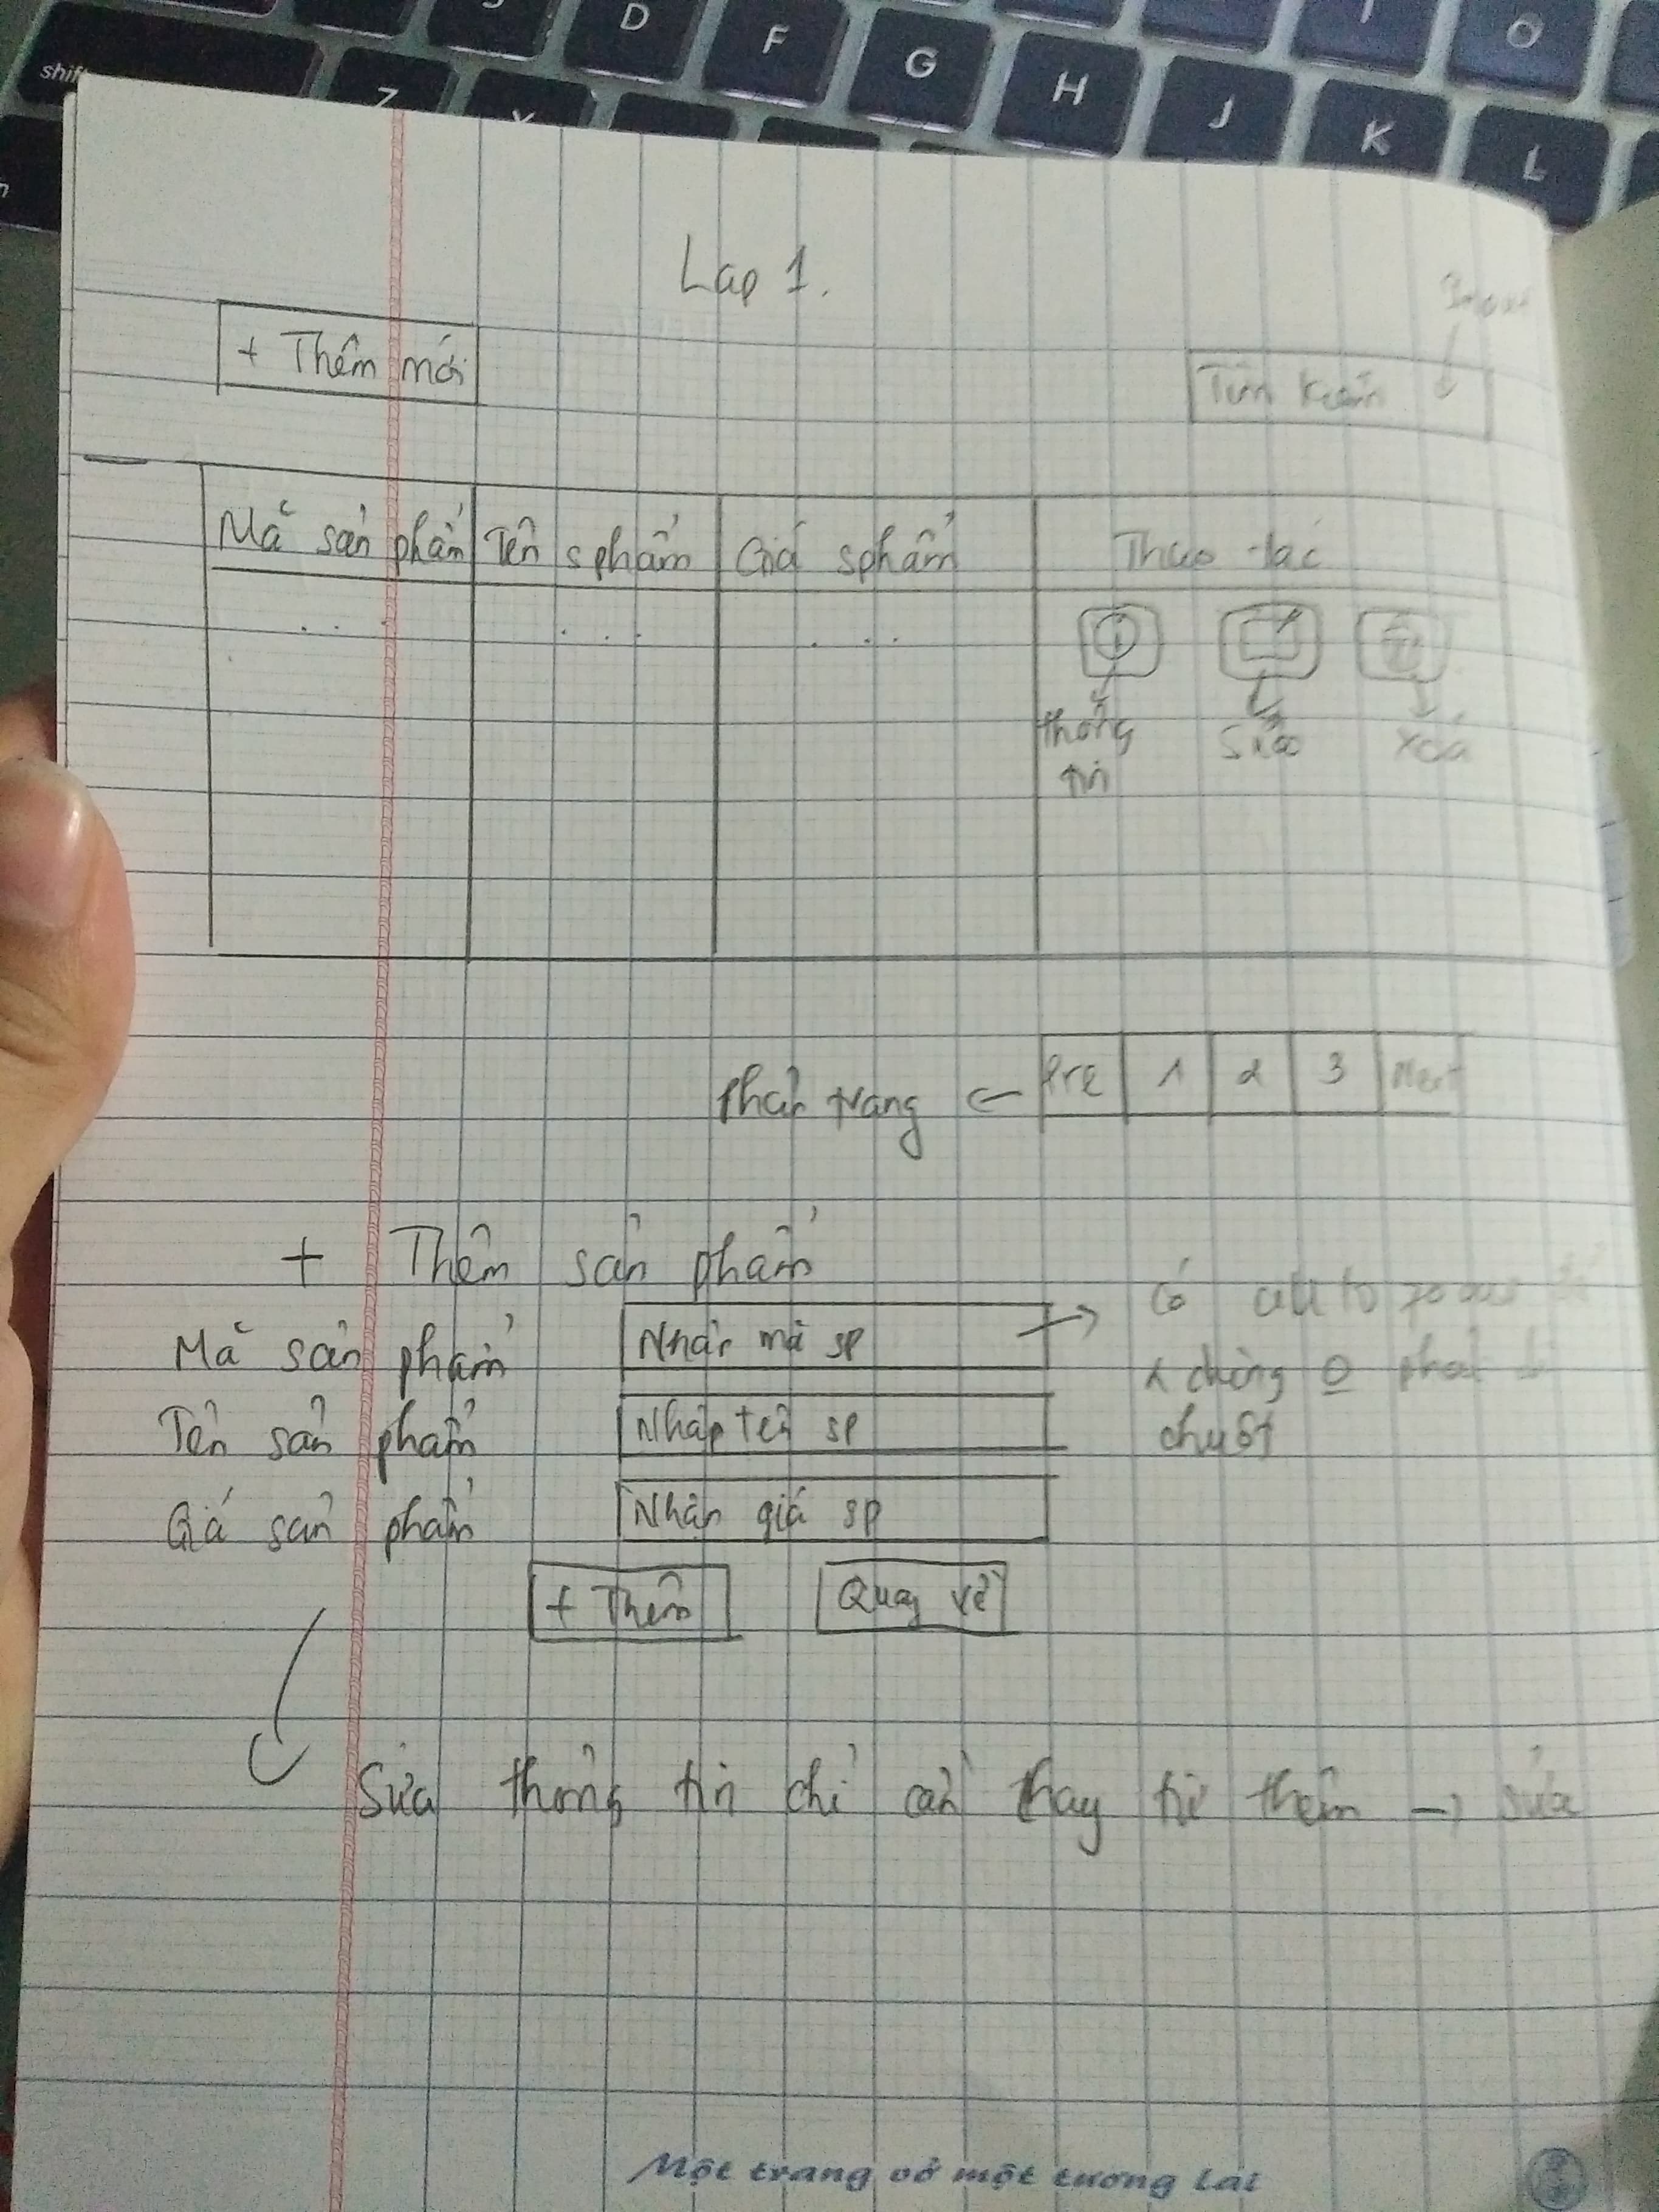 shift
D F G H J K L O
Lap 1.
+ Thêm mới
Tìm kiếm
Mã sản phẩm Tên sphẩm Giá sphẩm Thao tác
... ... ...
thông tin Sửa Xoá
Phân trang ← Pre 1 2 3 Next
+ Thêm sản phẩm
Mã sản phẩm Nhập mã sp → có auto
Tên sản phẩm Nhập tên sp dùng phải
chuột
Giá sản phẩm Nhập giá sp
+ Thêm Quay về
Sửa thông tin chỉ cần thay từ thêm → sửa
Một trang vở một tương lai